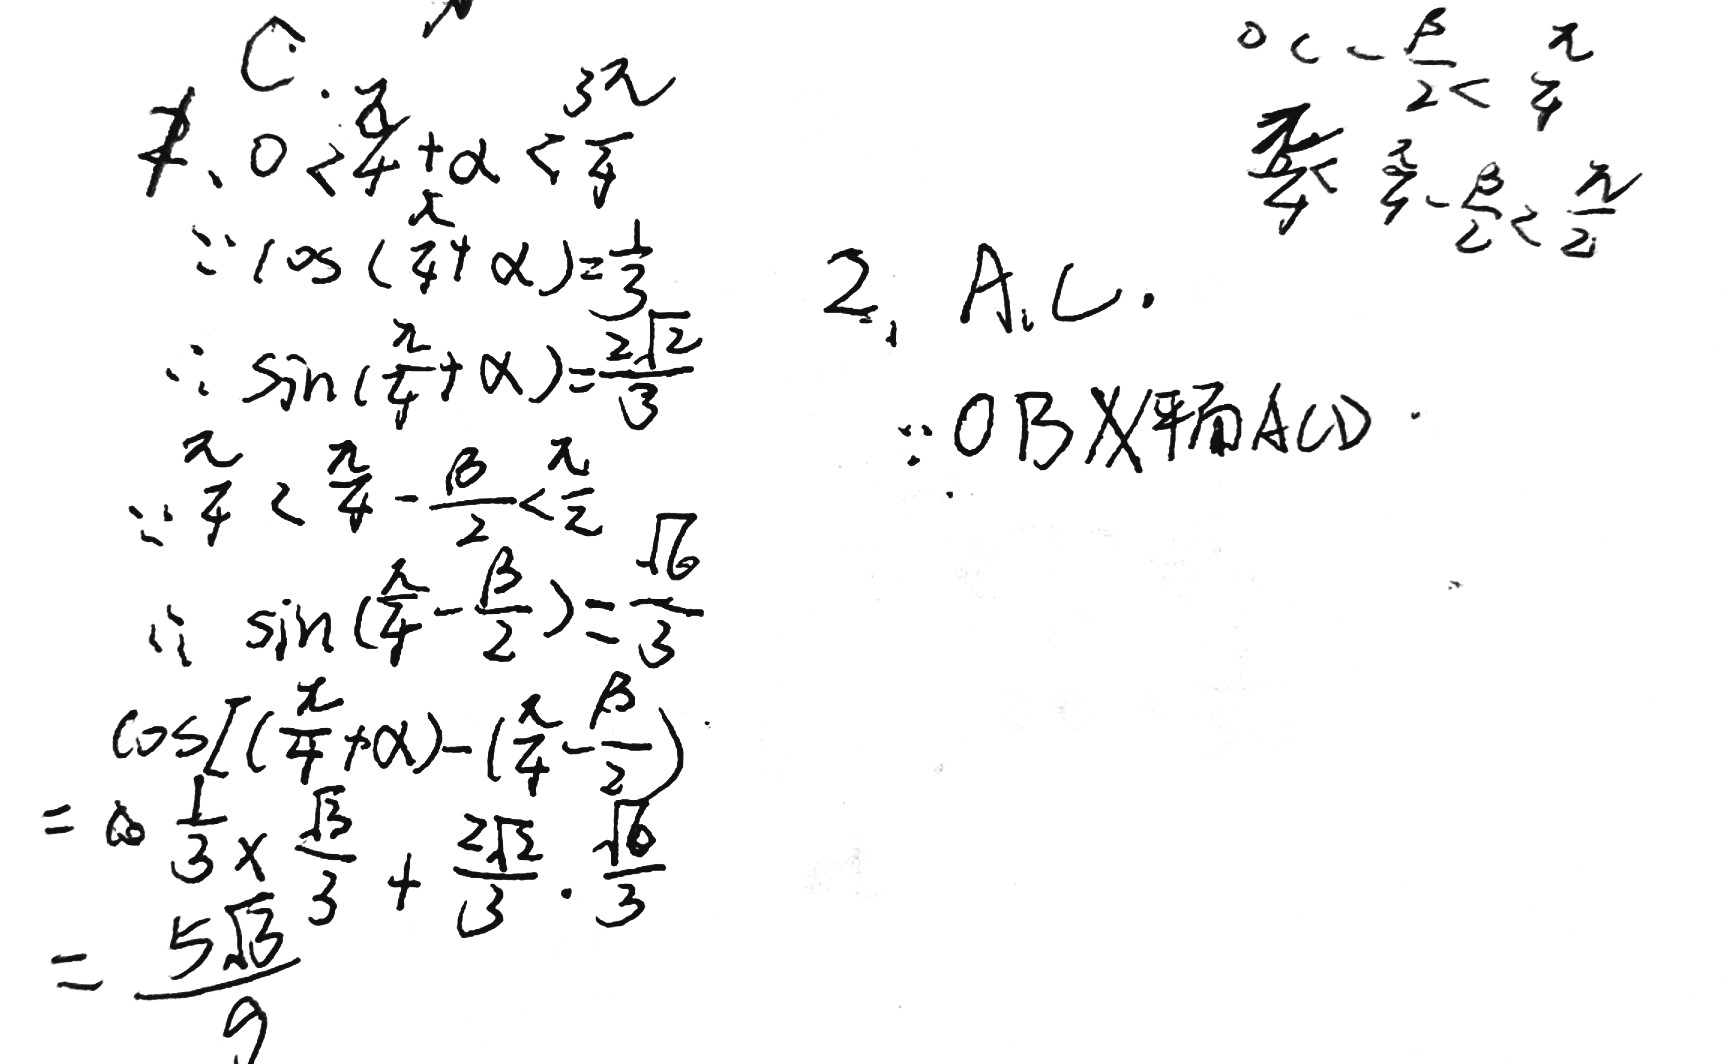 C.
1、0<π/4+α<3π/4
∵cos(π/4+α)=1/3
∴sin(π/4+α)=2√2/3
∵π/4<π/4-β/2<π/2
∴sin(π/4-β/2)=√6/3
cos[(π/4+α)-(π/4-β/2)
=1/3×√3/3+2√2/3·√6/3
=5√3/9
0<-β/2<π/4
π/4<π/4-β/2<π/2
2、A.C.
∵OB平面ACD